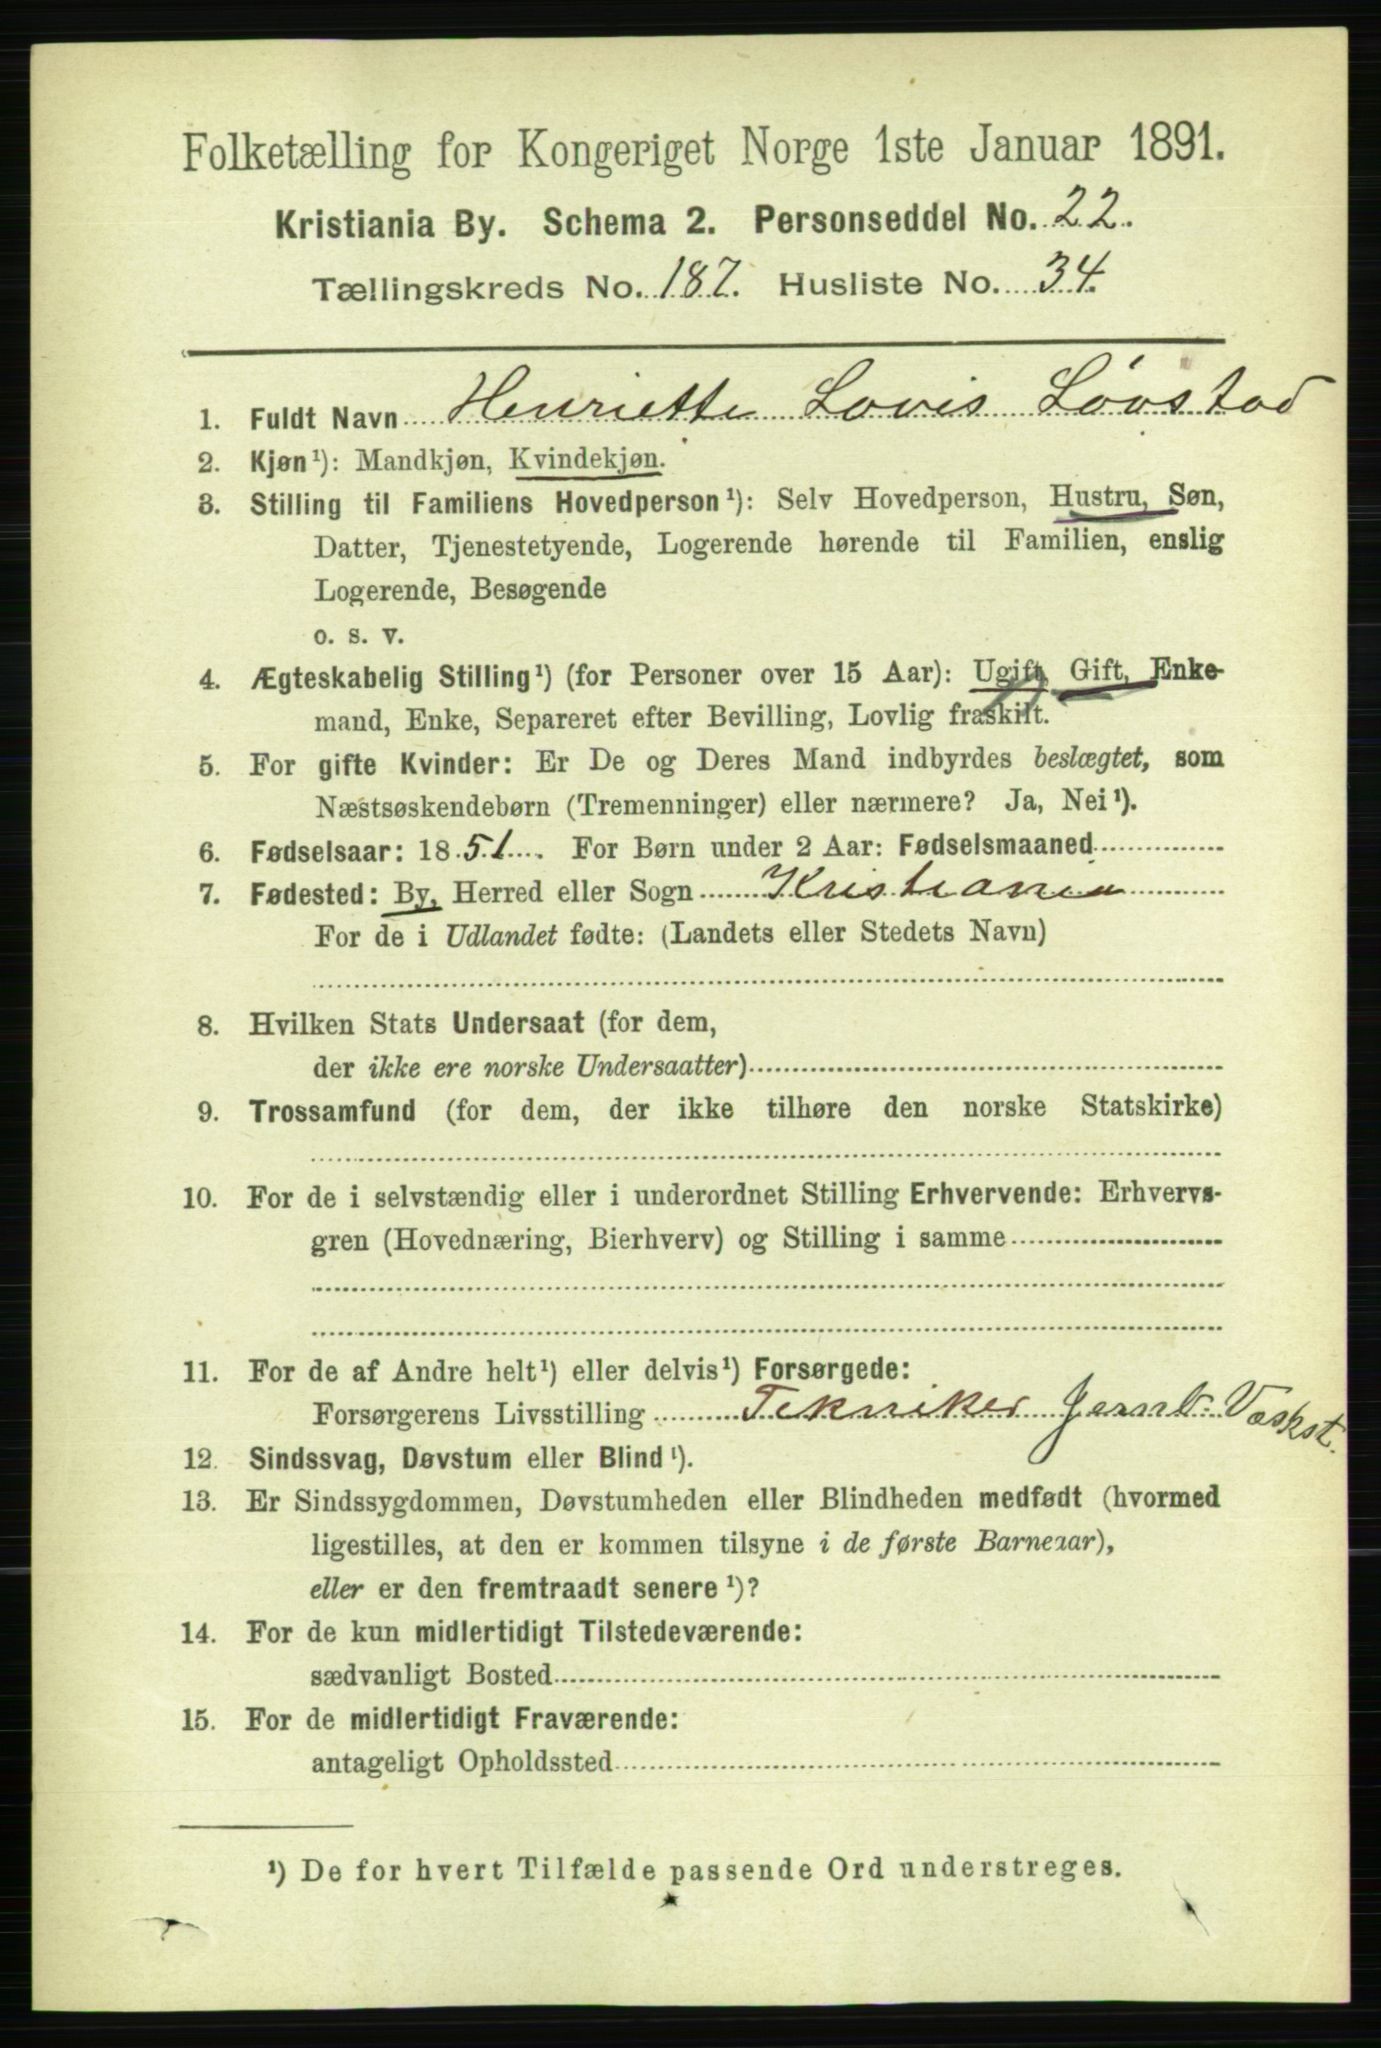 Folketælling for Kongeriget Norge 1ste Januar 1891.
Kristiania By. Schema 2. Personseddel No. 22.
Tællingskreds No. 187. Husliste No. 34.
1. Fuldt Navn Henriette Lovis Lövstad
2. Kjøn¹): Mandkjøn, Kvindekjøn.
3. Stilling til Familiens Hovedperson¹): Selv Hovedperson, Hustru, Søn,
Datter, Tjenestetyende, Logerende hørende til Familien, enslig
Logerende, Besøgende
o. s. v.
4. Ægteskabelig Stilling¹) (for Personer over 15 Aar): Ugift, Gift, Enke-
mand, Enke, Separeret efter Bevilling, Lovlig fraskilt.
5. For gifte Kvinder: Er De og Deres Mand indbyrdes beslægtet, som
Næstsøskendebørn (Tremenninger) eller nærmere? Ja, Nei¹).
6. Fødselsaar: 1851. For Børn under 2 Aar: Fødselsmaaned
7. Fødested: By, Herred eller Sogn Kristiania
For de i Udlandet fødte: (Landets eller Stedets Navn)
8. Hvilken Stats Undersaat (for dem,
der ikke ere norske Undersaatter)
9. Trossamfund (for dem, der ikke tilhøre den norske Statskirke)
10. For de i selvstændig eller i underordnet Stilling Erhvervende: Erhvervs-
gren (Hovednæring, Bierhverv) og Stilling i samme
11. For de af Andre helt¹) eller delvis¹) Forsørgede:
Forsørgerens Livsstilling Tekniker Jernb. Værkst.
12. Sindssvag, Døvstum eller Blind¹).
13. Er Sindssygdommen, Døvstumheden eller Blindheden medfødt (hvormed
ligestilles, at den er kommen tilsyne i de første Barneaar),
eller er den fremtraadt senere¹)?
14. For de kun midlertidigt Tilstedeværende:
sædvanligt Bosted
15. For de midlertidigt Fraværende:
antageligt Opholdssted
¹) De for hvert Tilfælde passende Ord understreges.